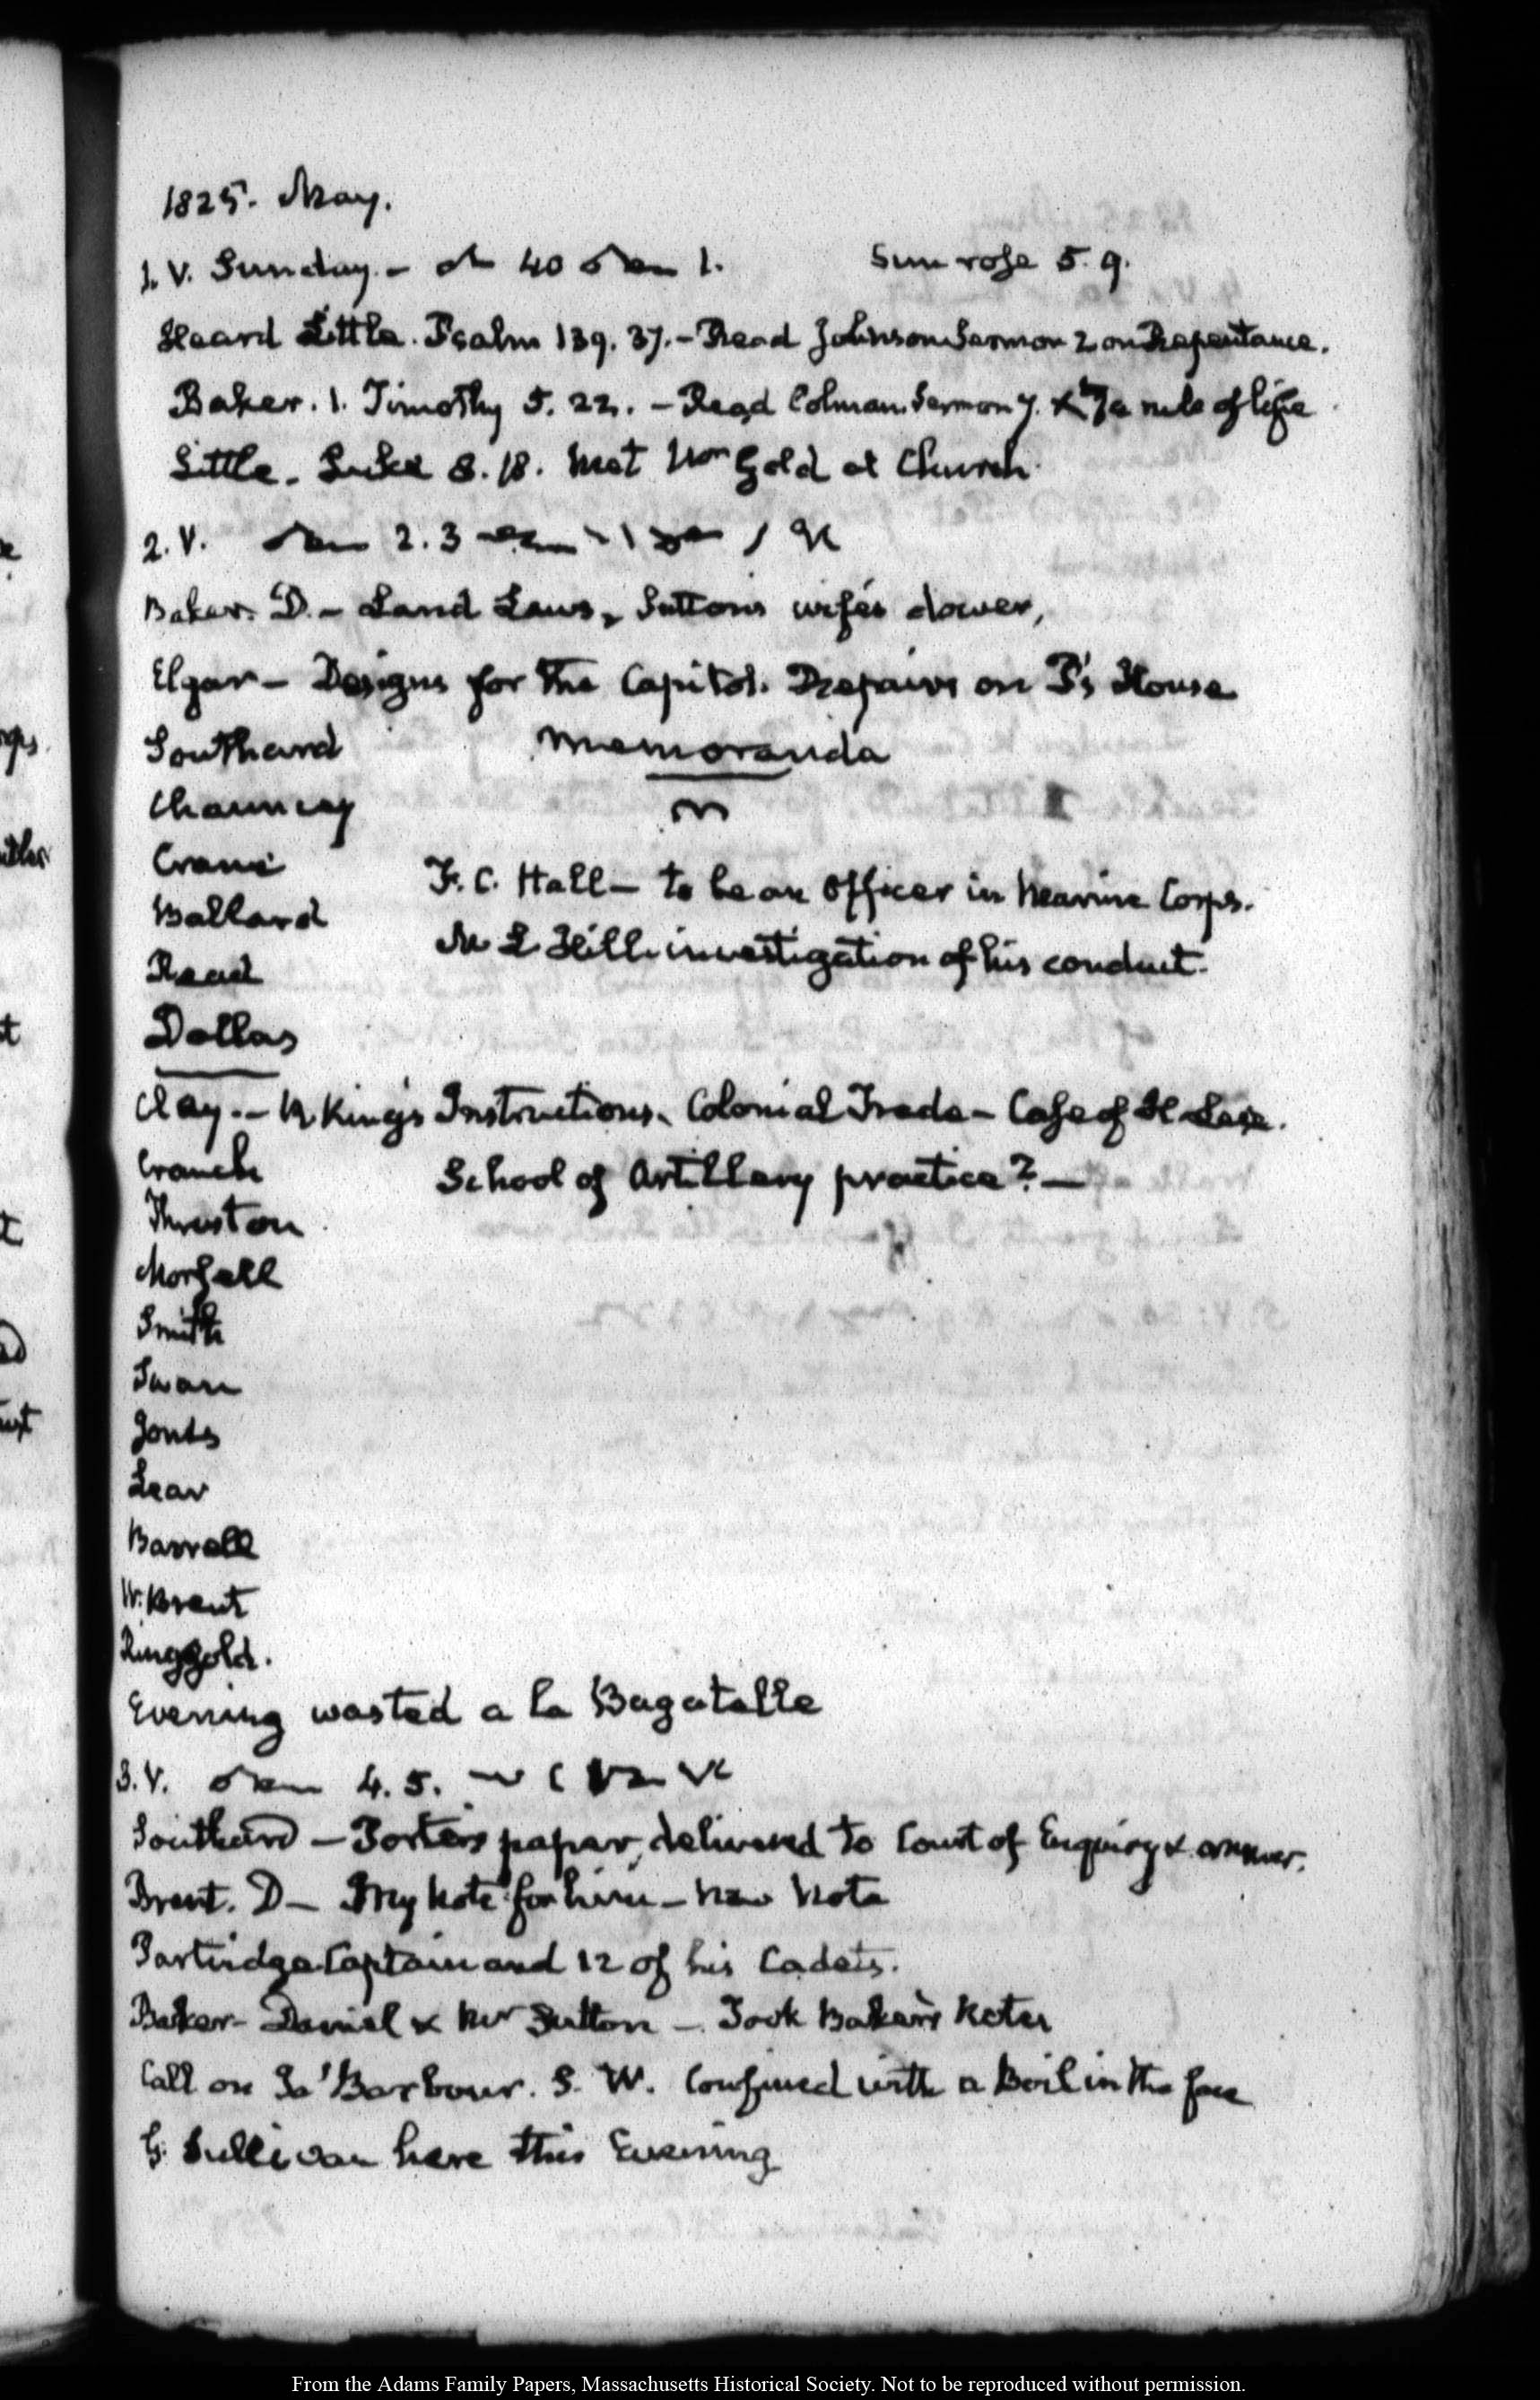 1825. May.
1. V. Sunday. – 40 1. Sun rose 5. 9.
Heard Little. Psalm 139. 37. – Read Johnson Sermon 2 on Repentance.
Baker. 1. Timothy 5. 22. – Read Colman Sermon 7. rule of life
Little. Luke 8. 18. Met Gold at Church.
2. V. 2. 3
Baker. D. – Land Laws, Sutton's wife's dower,
Elgar – Designs for the Capitol. Repairs on P's House
Southard Memoranda
Chauncey
Crane
F. C. Hall – to be an Officer in Marine Corps.
Ballard
M L Hill investigation of his conduct.
Read
Dallas
Clay. – R. King's Instructions. Colonial Trade – Case of
Cranch School of Artillery practice? –
Thruston
Morsell
Smith
Swan
Jones
Lear
Barrell
W. Brent
Ringgold.
Evening wasted a la Bagatelle
3. V. 4. 5.
Southard – Porter's paper, delivered to Court of Enquiry & answer.
Brent. D – My Note for him – New Note
Partridge Captain and 12 of his Cadets.
Baker – Daniel & Sutton – Took Baker's Notes
Call on Barbour. S. W. Confined with a Boil in the face
G. Sullivan here this Evening
From the Adams Family Papers, Massachusetts Historical Society. Not to be reproduced without permission.